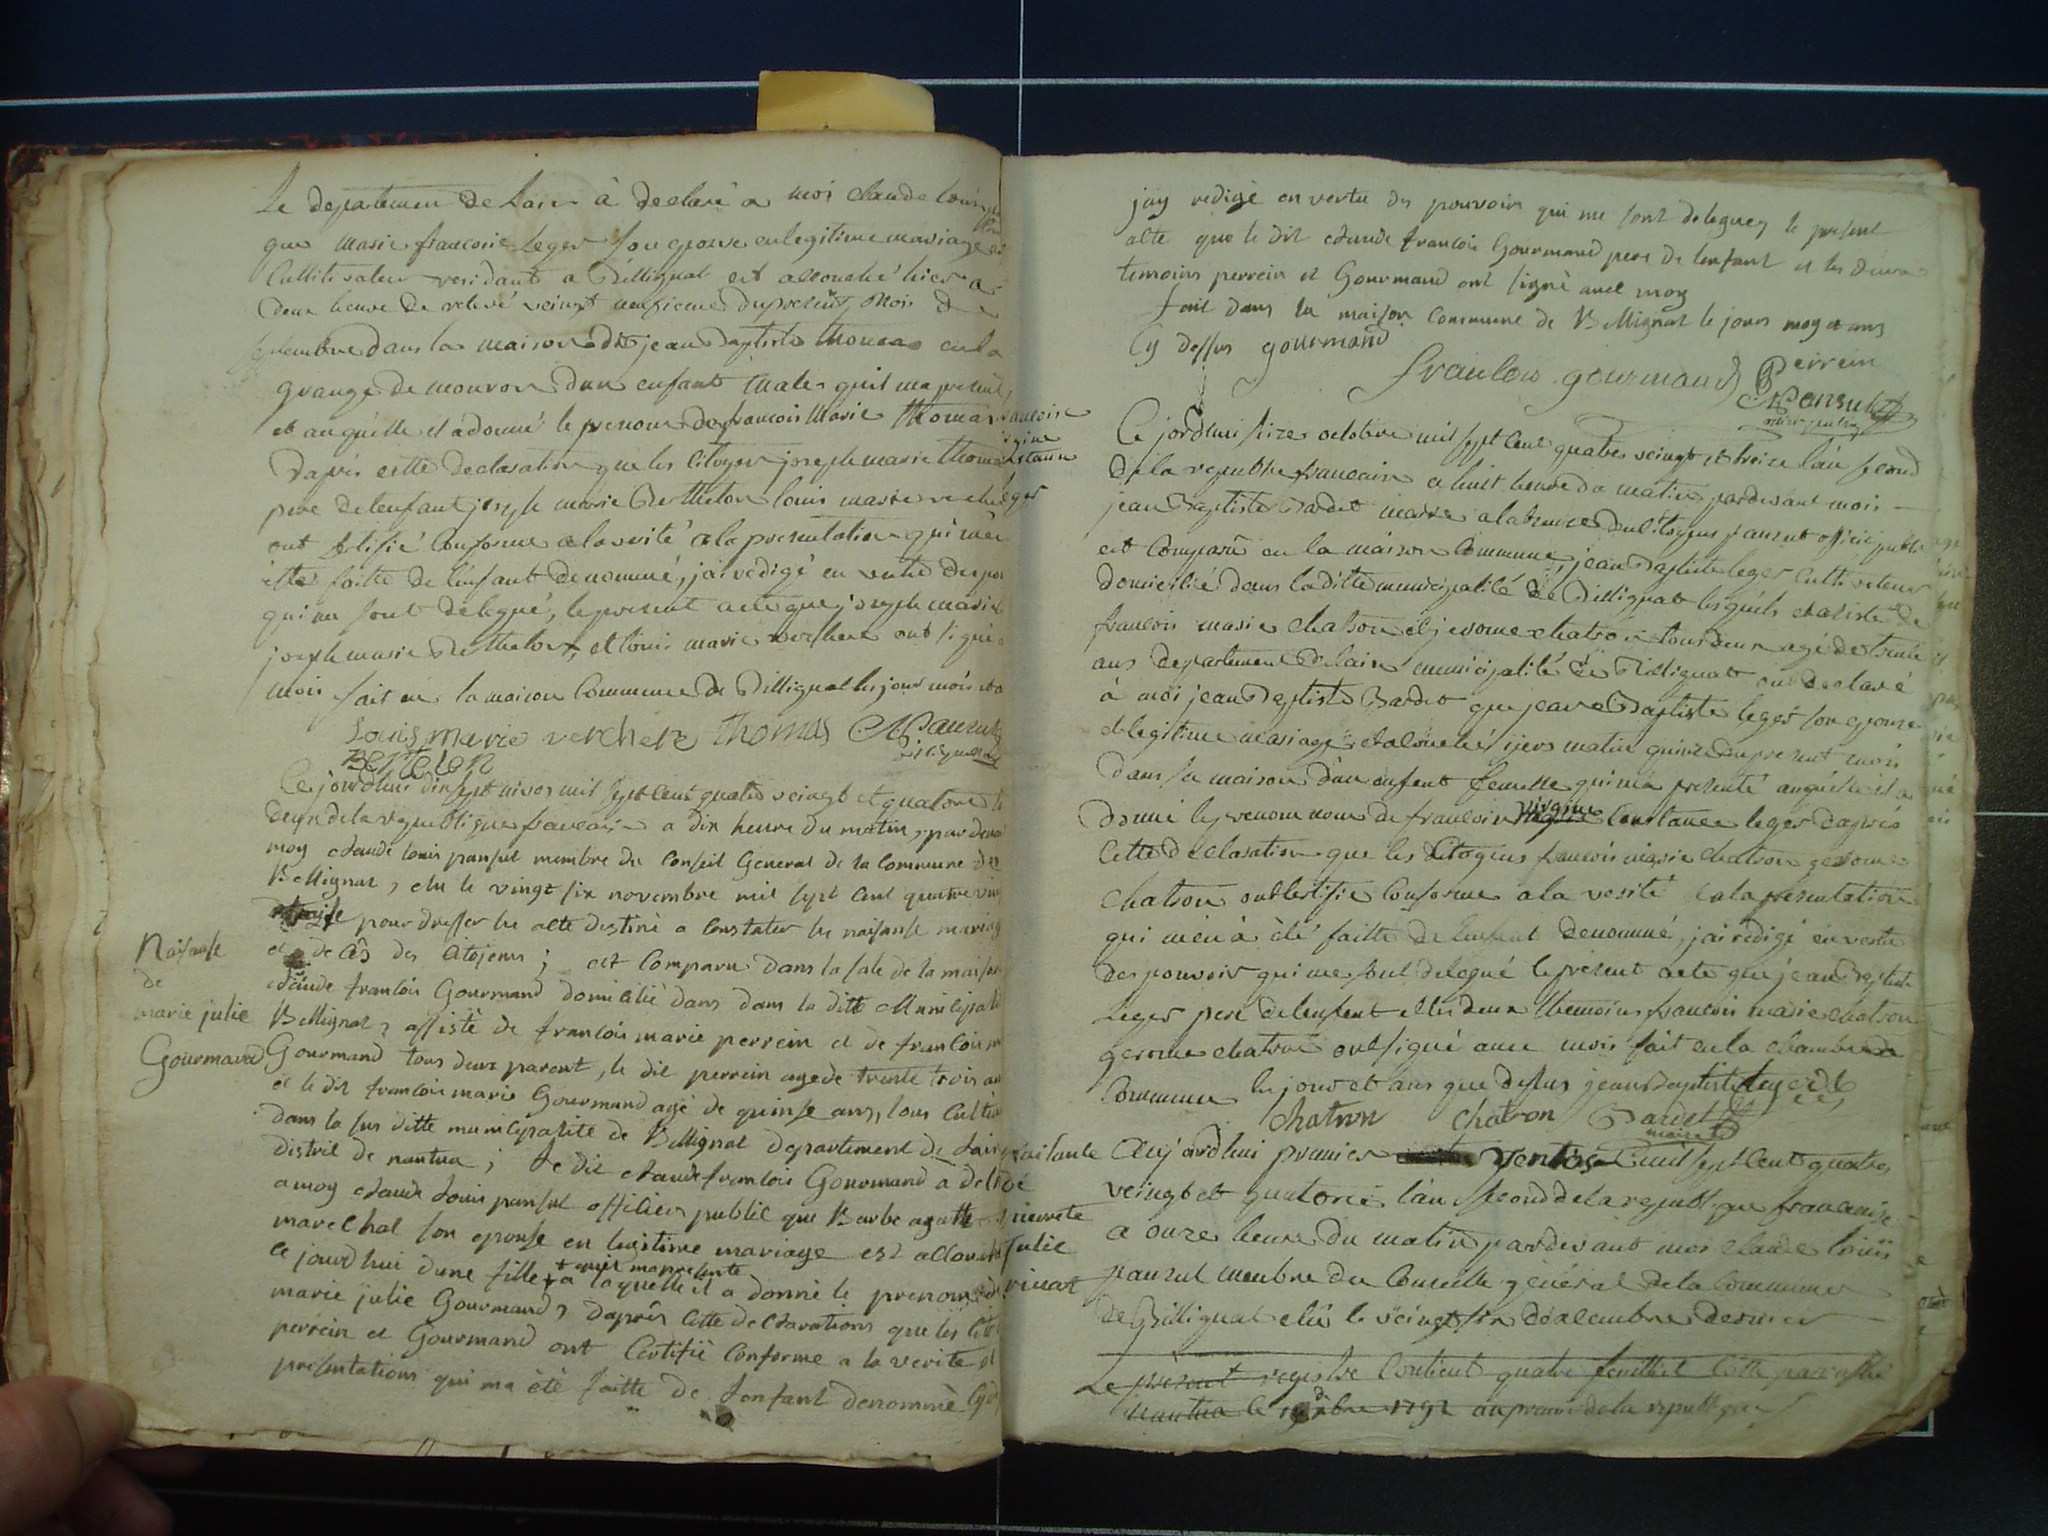 Le departemen de Lain à declaré a moi claude louis
que marie francoise Leger son epouse en legitime mariage
Cultivateur residant a Billignat est accouché hier a
deux heure de relevé veingt neufieme du present mois de
septembre dans la maison dit jean Baptiste thomas en la
grange de mouron dun enfant male quil ma presenté
et auquelle il a donné le prenom de francois Marie thomas
Dapres cette declaration que les citoyen joseph marie thomas
pere de lenfant joseph marie Berthelon louis marie verchere
ont sertifié Conforme a la verité a la presentation qui mà
été faitte de lenfant denommé, jai rédigé en vertu des
qui me sont delegué, le present acte que joseph marie
joseph marie Berthelon, et louis marie verchere ont signé
mois fait en la maison Commune de Billignat les jour mois et
Louis marie verchere thomas Pansut
BERTELON
Ce jourdhui dix sept nivos mil sept Cent quatre veingt et quatorze
deux de la republique francaise a dix heure du matin, par devant
moy claude louis pansut membre du Conseil General de la Commune de
Bellignat, elu le vingt six novembre mil sept Cent quatre vingt
pour dresser les alte destiné a Constater les naissanse mariage
et de Cès des Citoyens ; est Comparu dans la sale de la maison
claude francois Gourmand domicilié dans dans la ditte Municipalité
Bellignat, assisté de francois marie perrein et de francois m
Gourmand tous deux parent, le dit perrein agé de trente trois ans
et le dit francois marie Gourmand agé de quinse ans, tous Cultiv
dans la sus ditte municipalité de Bellignat departement de Lain
distric de nantua ; le dit claude francois Gourmand a declaré
a moy claude louis pansut officier public que Barbe agatte
marechal son epouse en legitime mariage est accouché
Ce jourdhui dune fille + a laquelle il a donné le prenom de
+ quil mapresente
marie julie Gourmand, daprés Cette declarations que les Cit
perrein et Gourmand ont Certifié Conforme a la verité et
presentations qui ma été faitte de Lenfant denommé Cy
Naisanse
de
marie julie
Gourmand
jay redigé en vertu des pouvoirs qui me sont deleguez le present
alte que le dit claude francois Gourmand pere de lenfant et les deux
temoins perrein et Gourmand ont signé avec moy
fait dans la maison Commune de Bellignat le jours moy et ans
Cy dessus gourmand
francois gourmand Perrein
Pansut
Ce jordhui seize octobre mil sept Cent quatre veingt et treize lan second
de la republi francaise a huit heure da matin pardevant mois
jean Baptiste Bardet maire a labsence du Citoyens pansut officié public
est Comparu en la maison Commune, jean Baptiste leger Cultivateur
domicilié dans la ditte municipalité de Billignat lesquels et asisté de
francois marie Chatron et jerome chatron tous deux agé de trente
ans departement de lain municipalité de Billignat ou declaré
à moi jean Baptiste Bardet que jean Baptiste leger son epouse
et legitime mariage et acouché ijers matin quinze du present mois
dans sa maison dun enfent femelle qui ma presenté auquélle il a
donné les prenom nom de francoise virginie Constance leger dapres
Cette declaration que les Citoyens francois marie chatron gerome
chatron ont sertifié Conforme a la verité a la presentation
qui men à été faitte de lenfent denommé, jai rédigé en vertu
des pouvoir qui me sont delegué le present acte que jean Baptiste
Leger pere de lenfent et les deux themoins francois marie chatron
gerome chatron ont signé avec mois fait en la chambre de
Commune les jour et ans que dessus jean Baptiste leger
chatron chatron Bardet
maire
Aujordhui premier ventos mil sept Cent quatre
veingt et quatorze lan second de la republique francaise
a onze heure du matin pardevant moi claude louis
pansut membre du Conseille général de la Commune
de Billignat elû le veingt six décembre dernier
Le présent registre Contient quatre feuillet
nantua le 1792 an premier de la republique